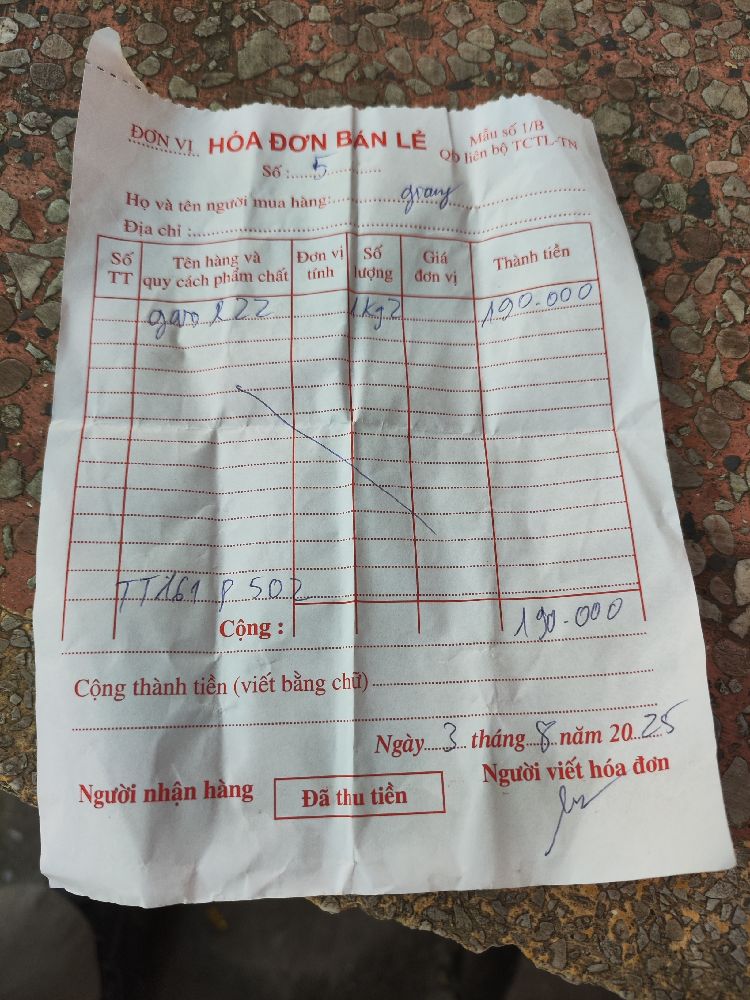 ĐƠN VỊ HÓA ĐƠN BÁN LẺ Mẫu số 1/B
Qb liên bộ TCTL-TN
Số : 5
Họ và tên người mua hàng: giang
Địa chỉ :
Số TT Tên hàng và quy cách phẩm chất Đơn vị tính Số lượng Giá đơn vị Thành tiền
gas R22 1kg2 190.000
TT161 P 502
Cộng : 190.000
Cộng thành tiền (viết bằng chữ)
Ngày 3 tháng 8 năm 2025
Người nhận hàng Đã thu tiền Người viết hóa đơn